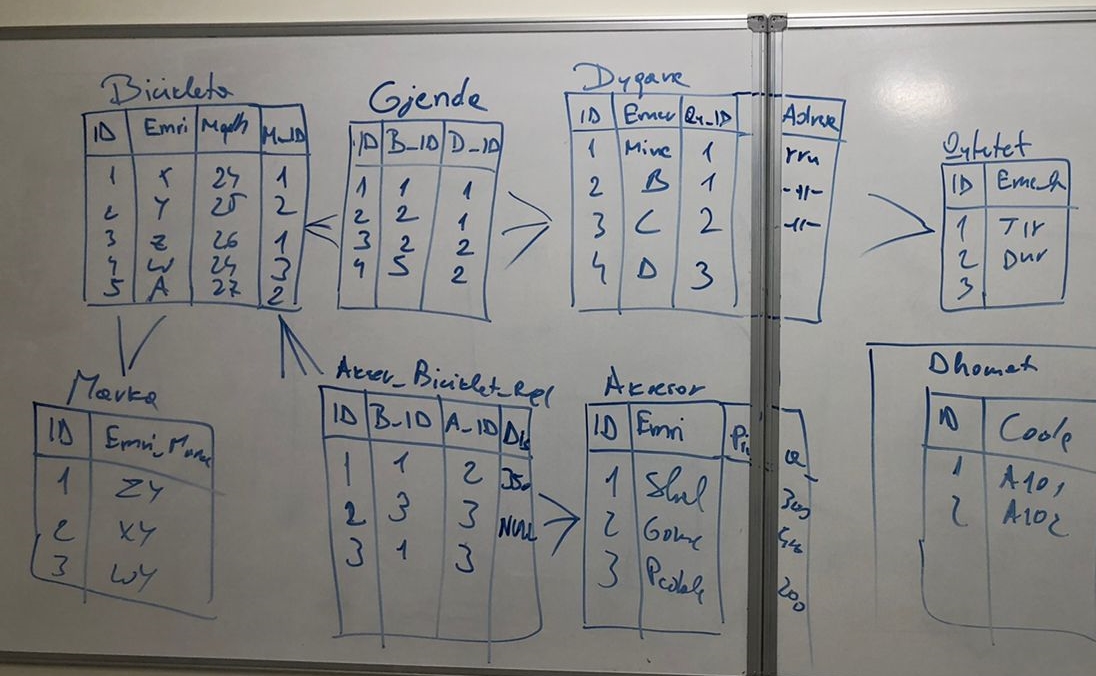 Bicicleta
ID Emri M_ID
1 X 24 1
2 Y 25 2
3 Z 26 1
4 W 24 3
5 A 27 2
Gjende
ID B_ID D_ID
1 1 1
2 2 1
3 2 2
4 5 2
Dyqane
ID Emer Qy_ID Adrese
1 Mine 1 rru
2 B 1 -11-
3 C 2 -11-
4 D 3
Qytetet
ID
1 Tir
2 Dur
3
Marka
ID Emri_Marka
1 ZY
2 XY
3 WY
Akses_Biciklet_Rel
ID B_ID A_ID
1 1 2 350
2 3 3 NULL
3 1 3
Aksesor
ID Emri
1
2 Gome
3 200
Dhomat
ID Code
1 A101
2 A102